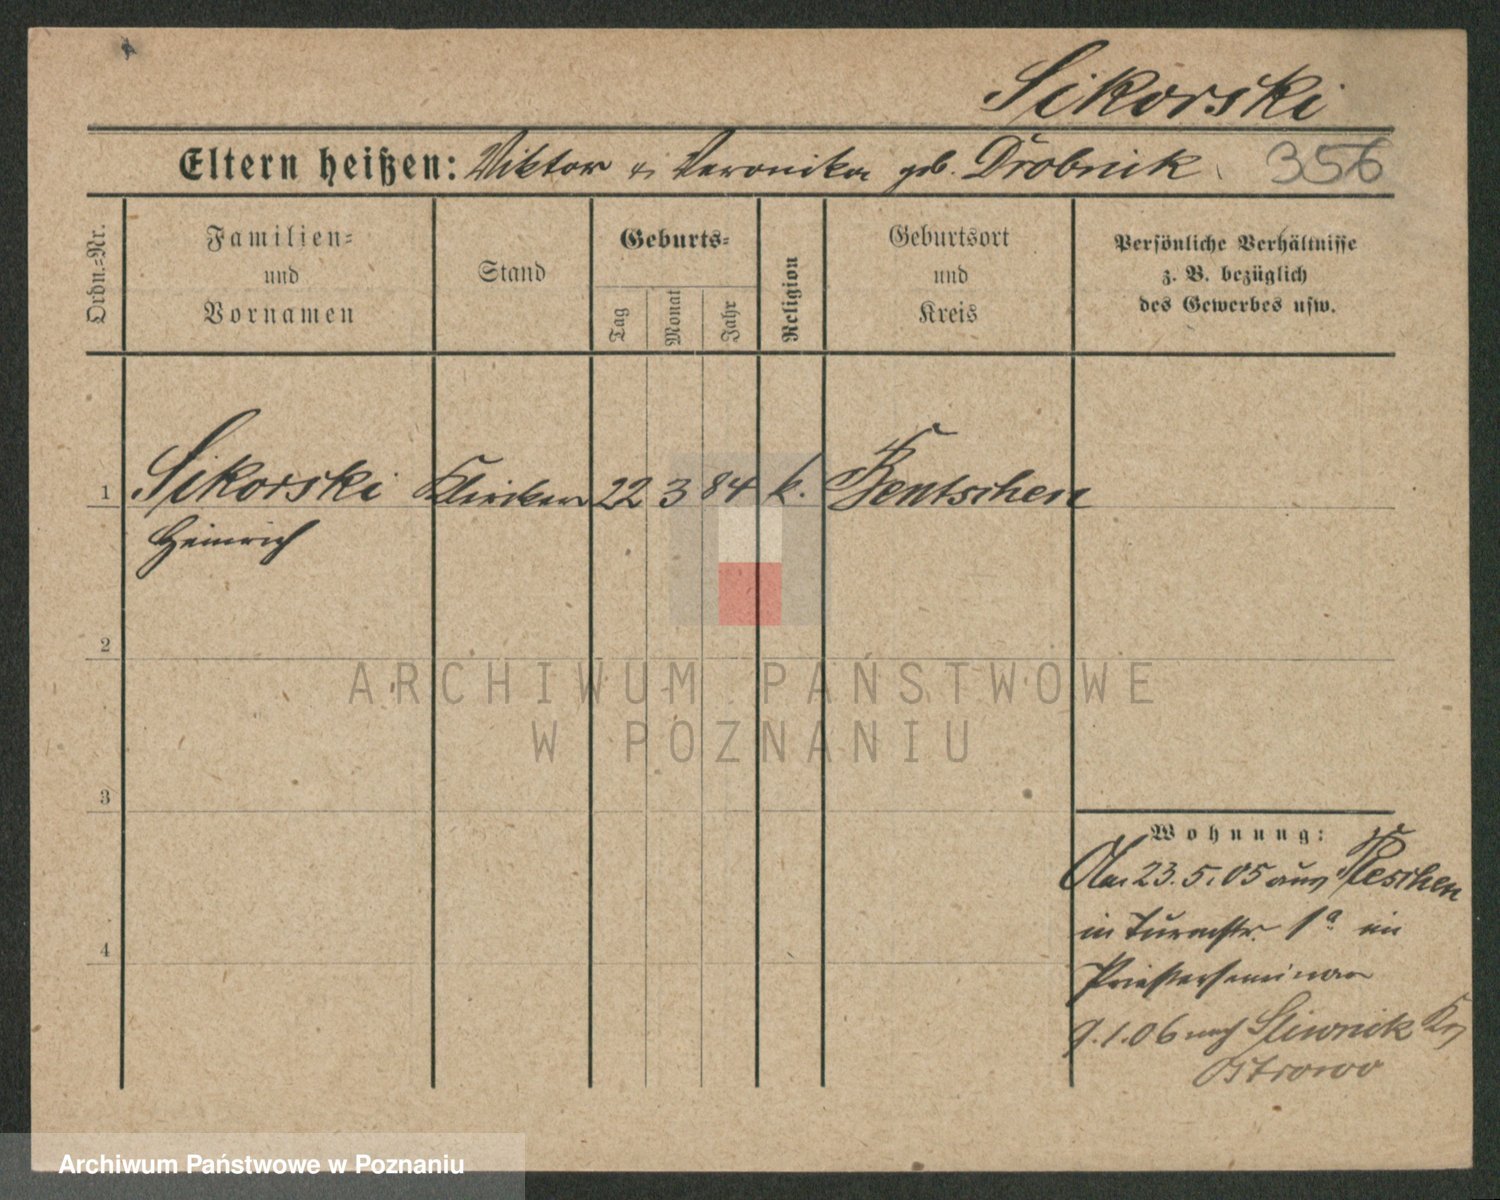 Sikorski
Eltern heißen: Viktor u. Veronika geb. Drobnik.
356
Ordn.-Nr.
Familien-
und
Vornamen
Stand
Geburts-
Tag
Monat
Jahr
Religion
Geburtsort
und
Kreis
Persönliche Verhältnisse
z. B. bezüglich
des Gewerbes usw.
1 Sikorski Kleriker 22 3 84 k. Bentschen
Heinrich
2
3
4
Wohnung:
23.5.05 aus Pleschen
in Turmstr. 1a im
Priesterseminar
9.1.06 nach Sliwnik Kr.
Ostrowo
ARCHIWUM PAŃSTWOWE
W POZNANIU
Archiwum Państwowe w Poznaniu